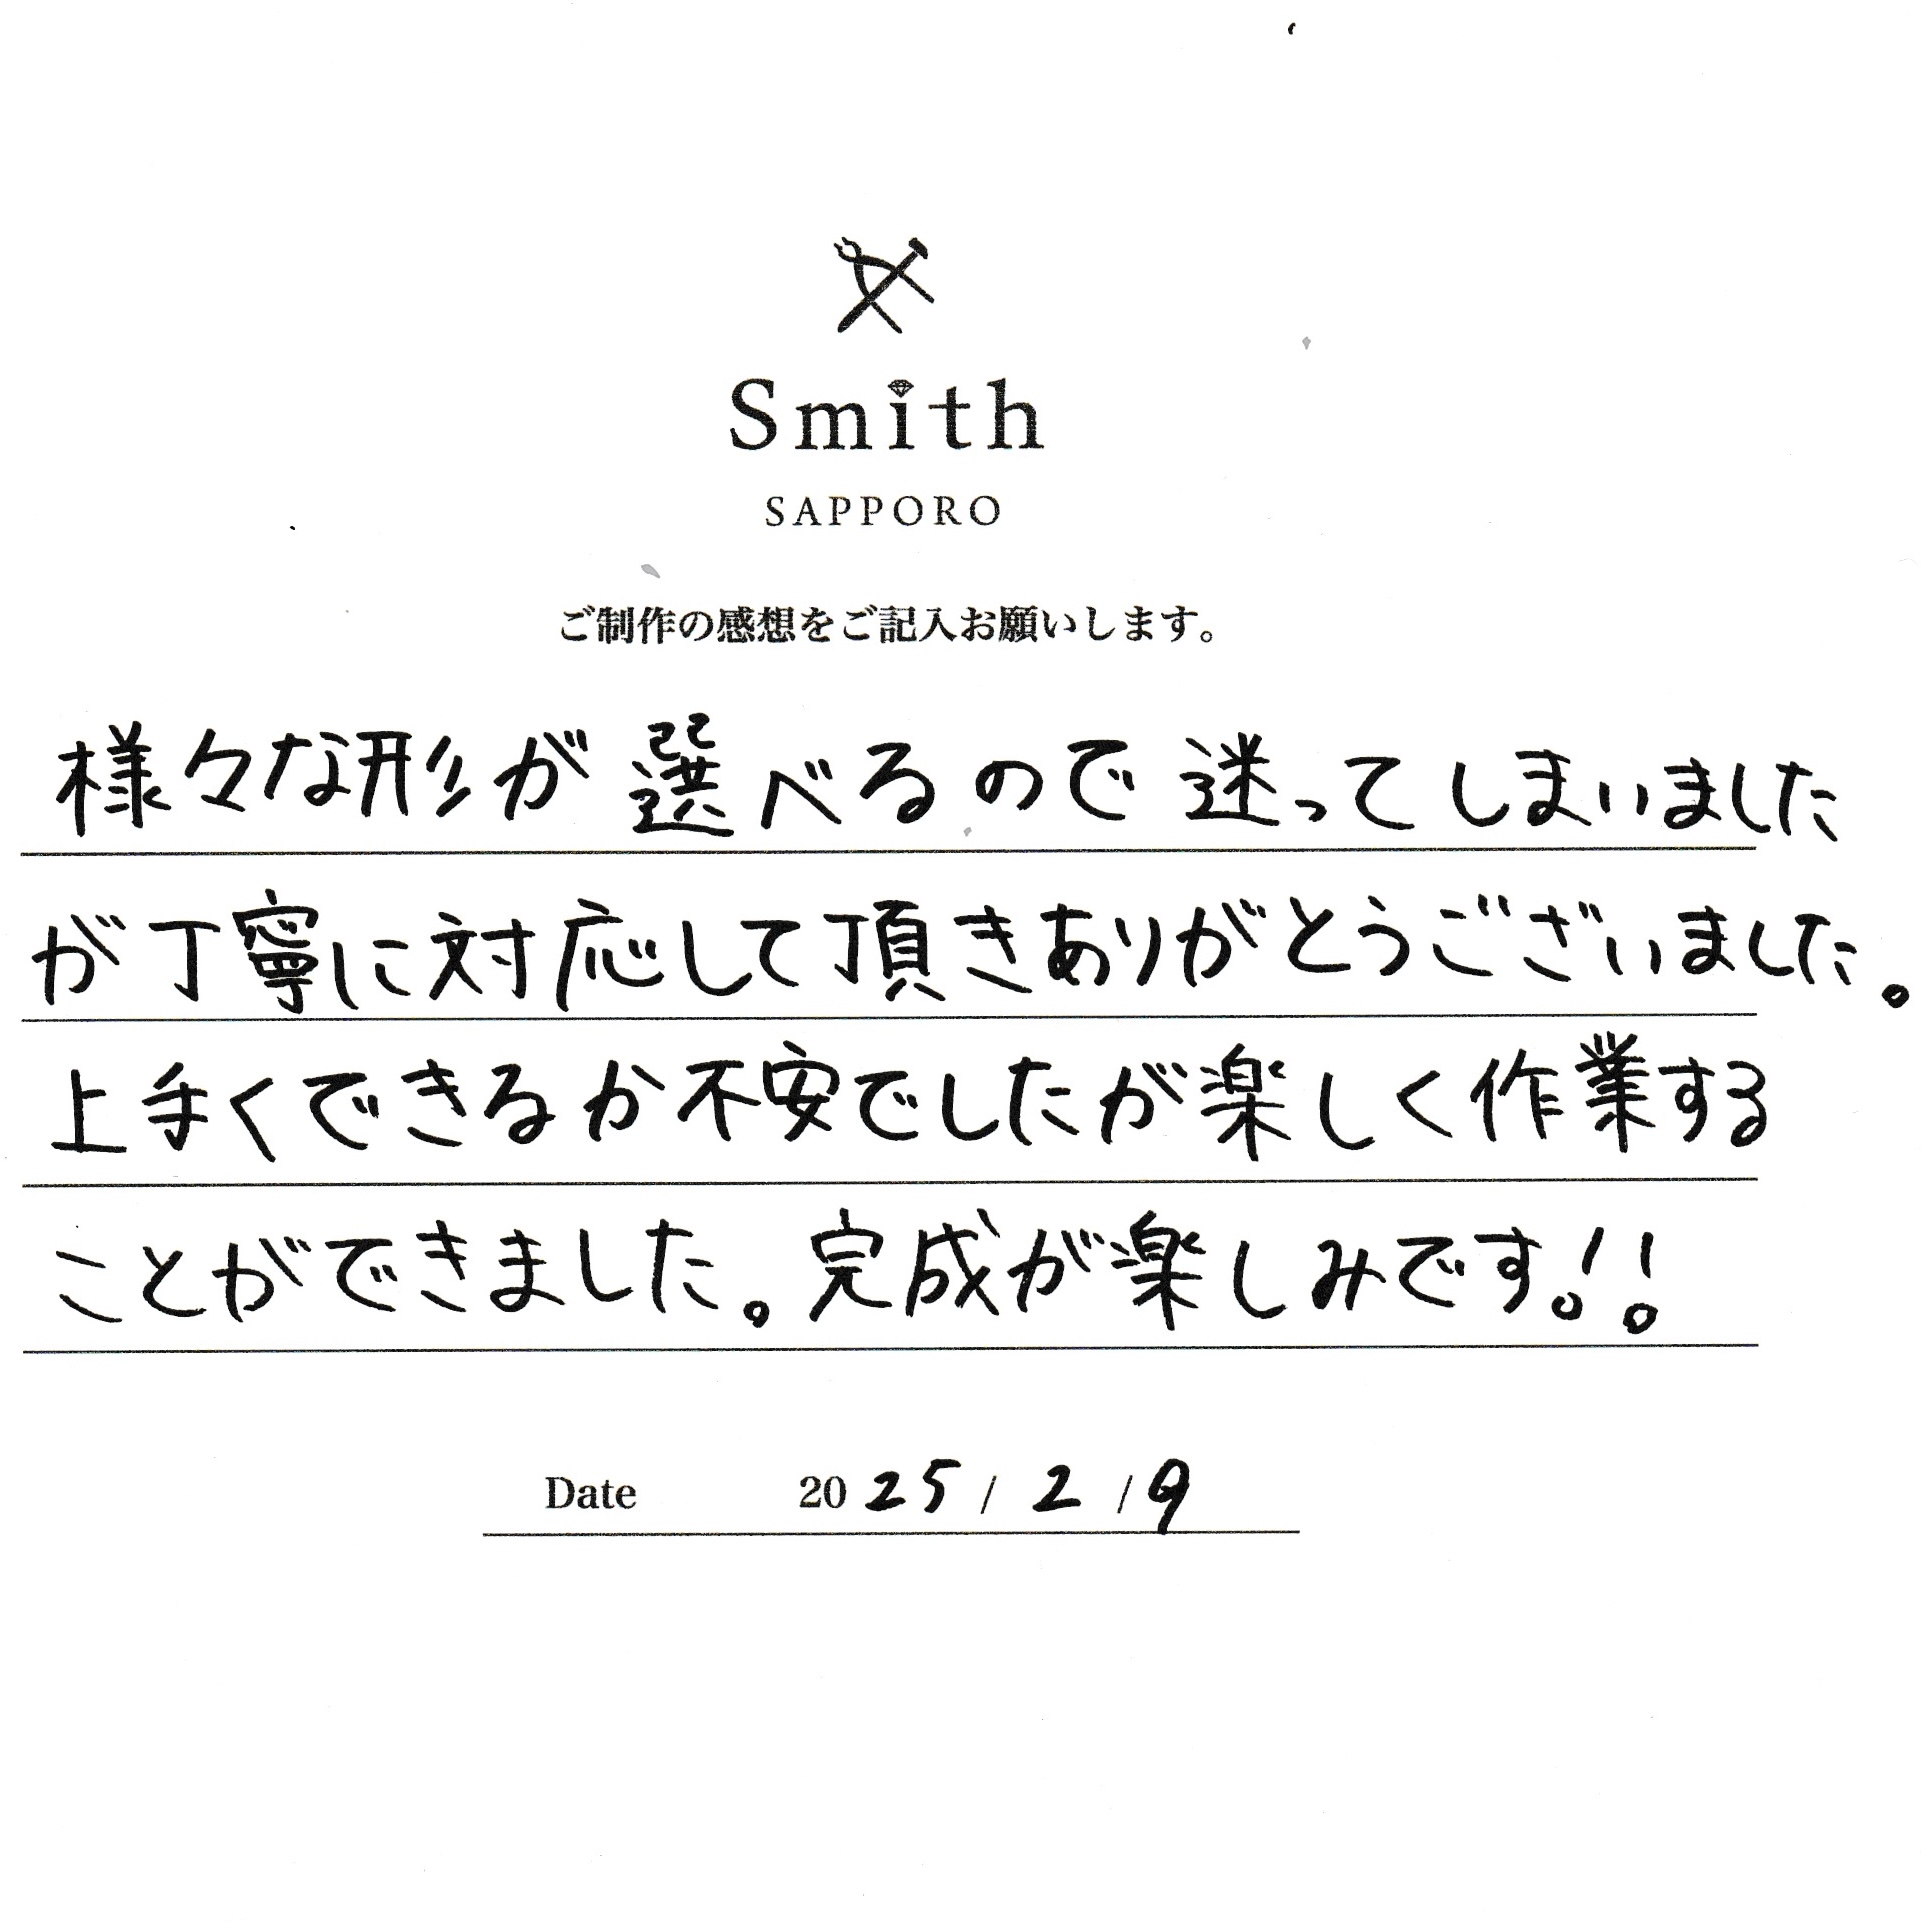 Smith
SAPPORO
ご制作の感想をご記入お願いします。
様々な形が選べるので迷ってしまいました
が丁寧に対応して頂きありがとうございました。
上手くできるか不安でしたが楽しく作業する
ことができました。完成が楽しみです!!
Date 2025/2/9